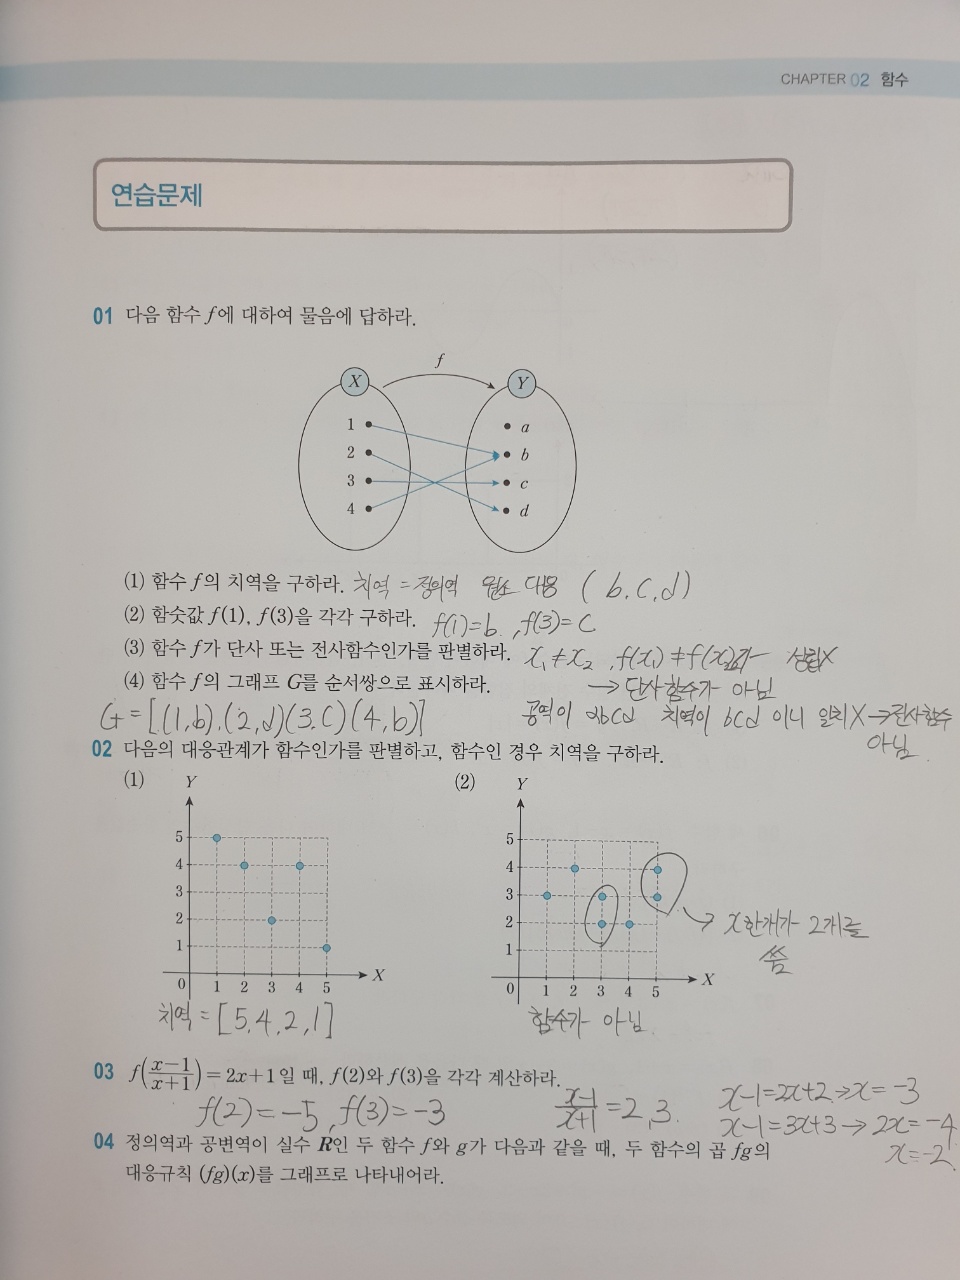 CHAPTER 02 함수
연습문제
01 다음 함수 f에 대하여 물음에 답하라.
f
X Y
1 a
2 b
3 c
4 d
(1) 함수 f의 치역을 구하라. 치역 = 정의역 원소 대응 ( b, c, d )
(2) 함숫값 f(1), f(3)을 각각 구하라. f(1)=b, f(3)=C
(3) 함수 f가 단사 또는 전사함수인가를 판별하라. x₁≠x₂, f(x₁)≠f(x₂)가 성립X
(4) 함수 f의 그래프 G를 순서쌍으로 표시하라. → 단사함수가 아님
G=[(1,b),(2,d)(3.C)(4,b)] 공역이 abcd 치역이 bcd 이니 일치X →전사함수
아님.
02 다음의 대응관계가 함수인가를 판별하고, 함수인 경우 치역을 구하라.
(1) Y (2) Y
5 5
4 4
3 3
2 2
1 1
0 1 2 3 4 5 X 0 1 2 3 4 5 X
→ X한개가 2개를
씀
치역 = [5,4,2,1] 함수가 아님.
03 f((x−1)/(x+1)) = 2x+1일 때, f(2)와 f(3)을 각각 계산하라.
f(2)=-5, f(3)=-3 (x-1)/(x+1)=2,3. x-1=2x+2→x=-3
x-1=3x+3→2x=-4
x=-2
04 정의역과 공변역이 실수 R인 두 함수 f와 g가 다음과 같을 때, 두 함수의 곱 fg의
대응규칙 (fg)(x)를 그래프로 나타내어라.